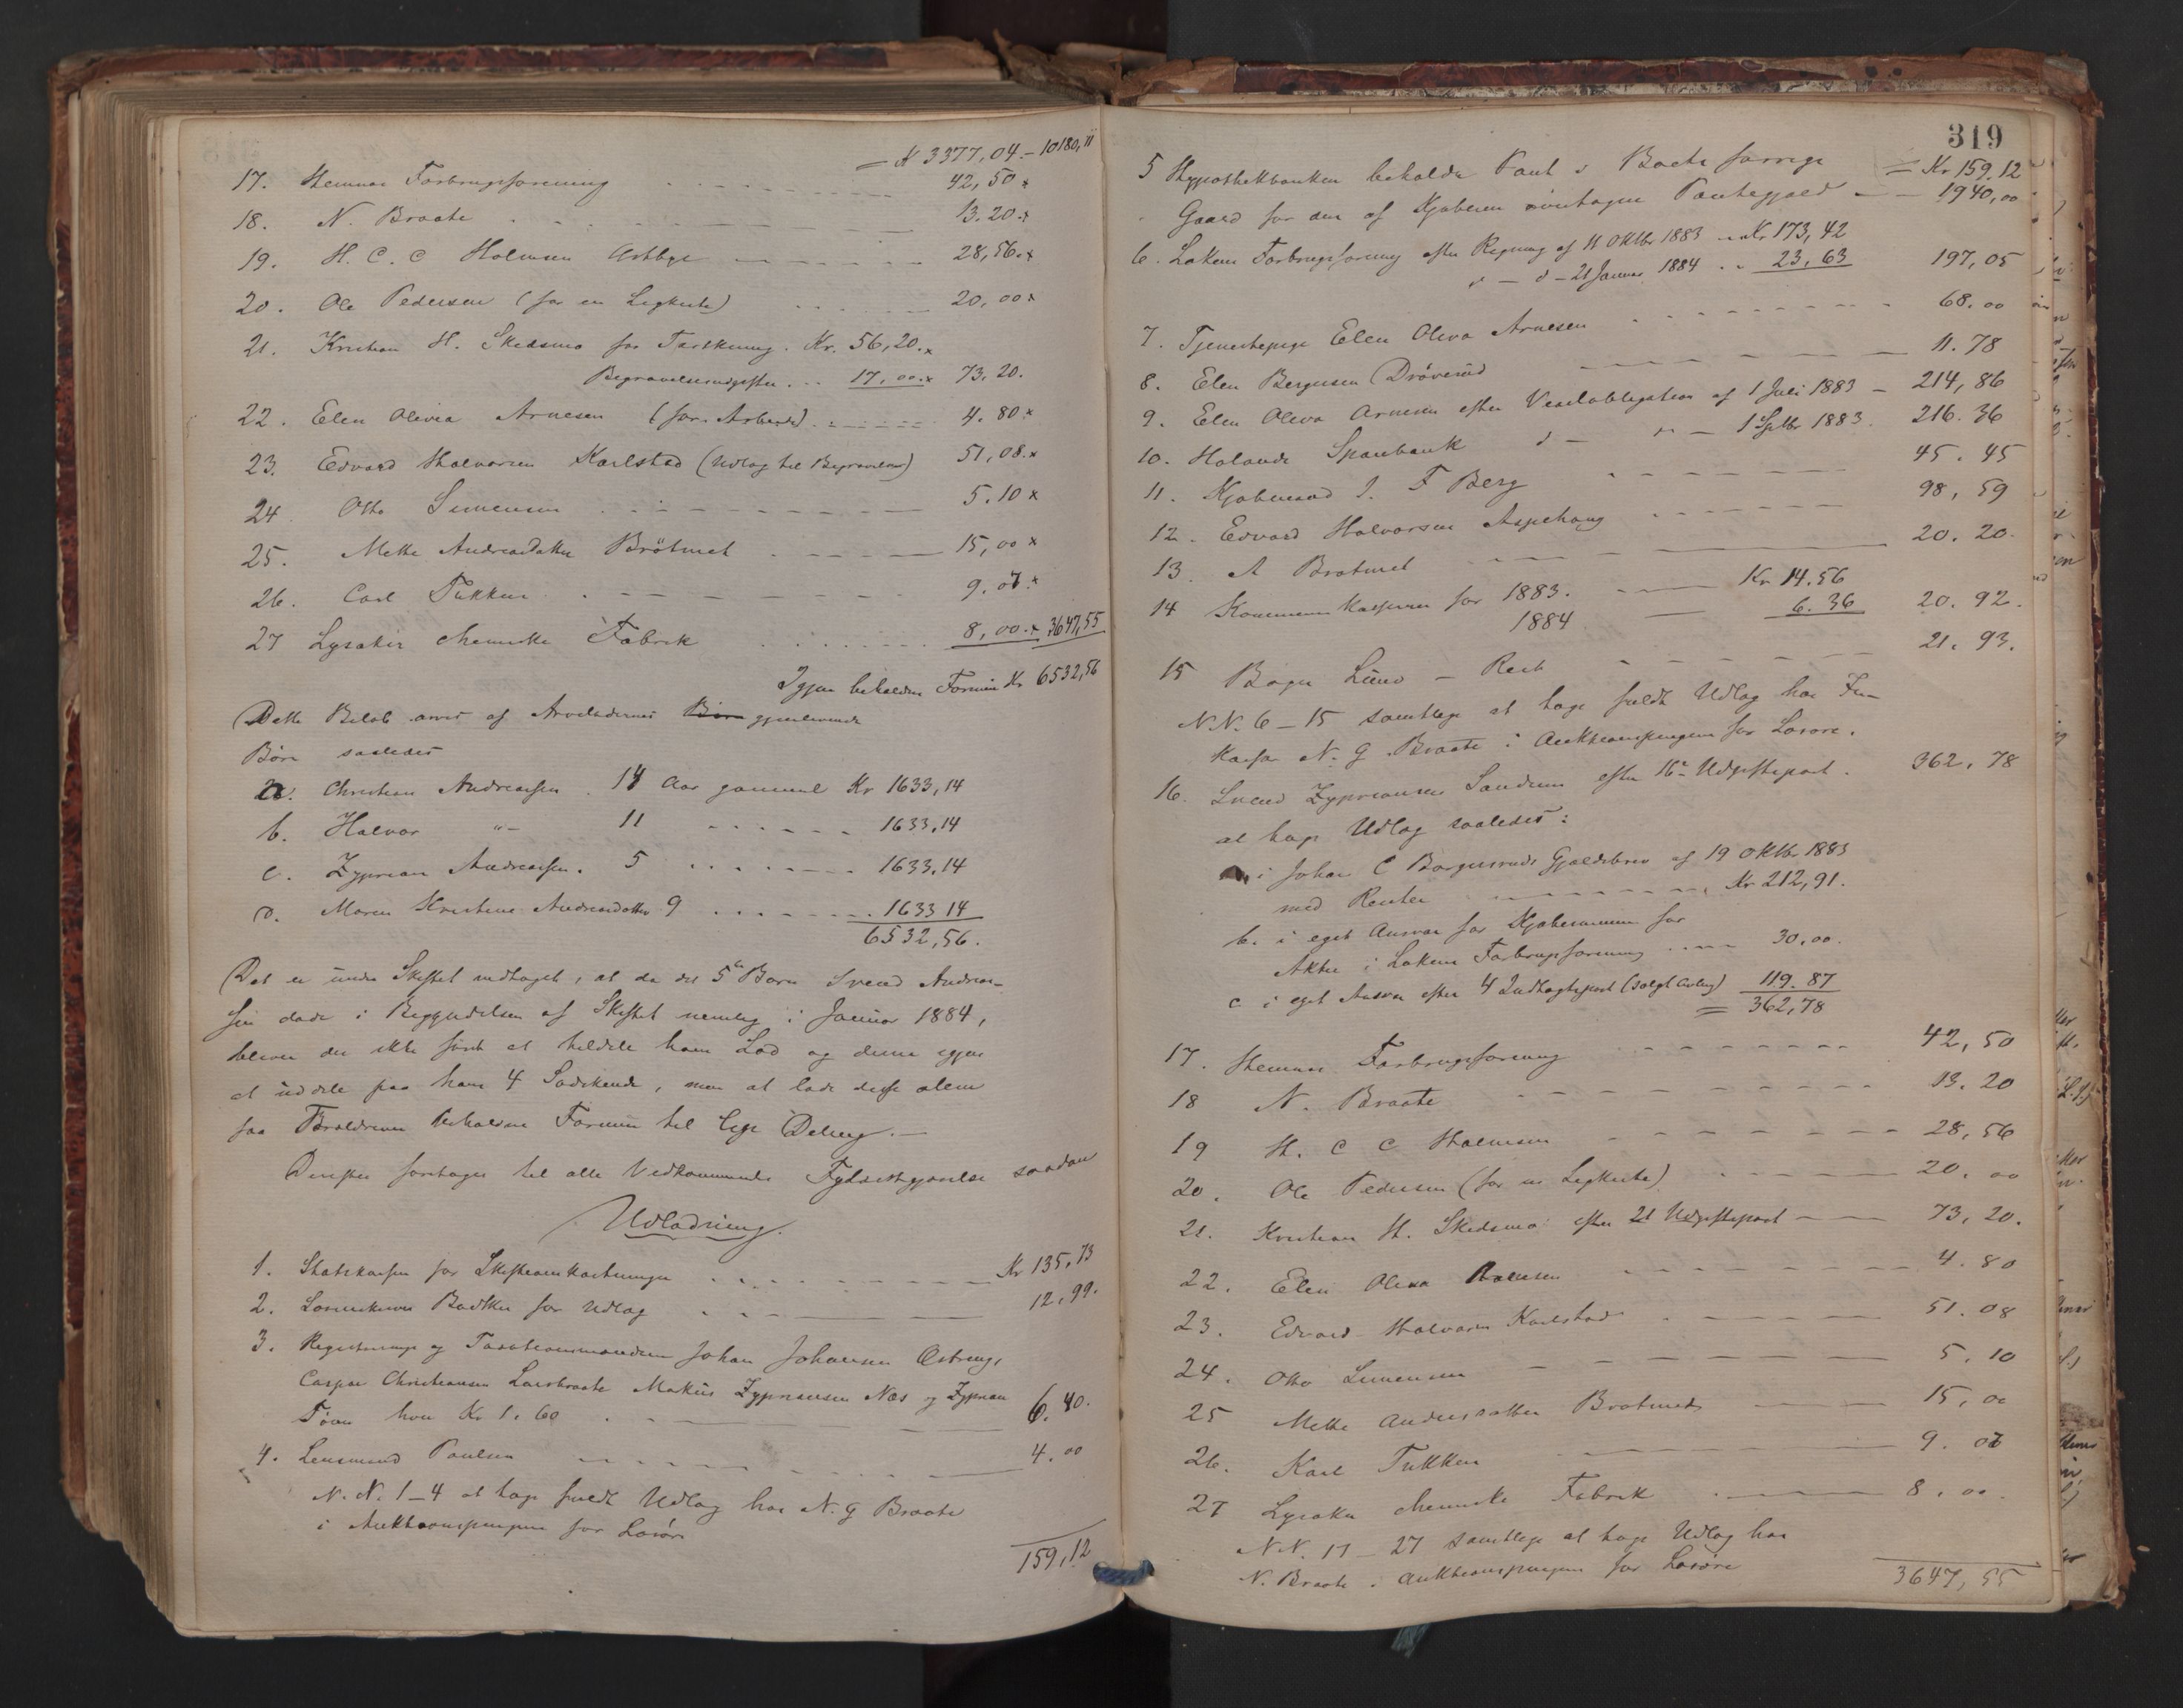 = Kr 3377,04 - 10180,11
17. Hemnæs Forbrugsforening 42,50 x
18. N. Braate 13.20 x
19. H. C. C Holmsen 28,56 x
20. Ole Pedersen (for en Ligkiste) 20,00 x
21. Kristian H. Skedsmo for Tærskning. Kr. 56,20. x
Begravelsesudgifter. .. 17,00. x 73,20.
22. Elen Olivia Arnesen (for Arbeide) 4.80 x
23. Edvard Halvorsen Karlstad (Udlæg til Begravelsen) 51,08. x
24. Otto Simensen 5.10 x
25. Mette Andreasdatter Bråtnet 15,00 x
26. Carl Tukkun 9.07 x
27 Lysaker chemiske Fabrik 8,00. x 3647,55
Igjen beholden Formue Kr 6532,56
Dette Beløb arves af Arveladernes Børn gjenlevende
Børn saaledes
a. Christian Andreassen . 14 Aar gammel Kr 1633,14
b. Halvor "- 11 - - - - 1633,14
c. Zyprian Andreassen. 5 - - - - 1633,14
d. Maren Kristine Andreasdatter 9 - - - - 1633 14
6532,56.
Det er under Skiftet vedtaget, at da det 5te Barn Svend Andreas-
sen døde i Begyndelsen af Skiftet nemlig i Januar 1884,
bliver der ikke først at tildele ham Lod og denne igjen
at uddele paa hans 4 Sødskende, men at lade disse alene
faa Forældrenes beholdne Formue til lige Deling. -
Derefter foretages til alle Vedkommendes Fyldestgjørelse saadan
Udlodning.
1. Statskassen for Skifteomkostninger Kr 135,73
2. Sorenskriver Bødtker for Udlæg 12,99.
3. Registrerings og Taxationsmændene Johan Johansen Østeng,
Caspar Christiansen Laersbraate Markus Zypriansen Næs og Zyprian
Tøien hver Kr 1.60 6.40.
4. Lensmand Paulsen 4.00
N. N. 1-4 at tage fuldt Udlæg hos N. G Braate
i Auktionspengene for Løsøre
159,12
319
= Kr 159.12
5 Hypothekbanken beholder Pant i Boets forrige
Gaard for den af Kjøberen overtagne Pantegjæld - 1940,00
6. Løken Forbrugsforening efter Regning af 11 Oktbr 1883 - Kr 173,42
" - d - 21 Januar 1884 .. 23,63 197,05
7. Tjenestepige Elen Oliva Arnesen 68.00
8. Elen Bergersen Dråverud 11.78
9. Elen Oliva Arnesen efter Vexelobligation af 1 Juli 1883 - 214,86
10. Hølands Sparebank d - " - 1 Septbr 1883. 216.36
11. Kjøbmand J. F Berg 45.45
12. Edvard Halvorsen Aspehaug 98,59
13. A Bråtnet 20.20.
14 Kommunekassereren for 1883. Kr 14.56
1884 6.36 20.92.
15 Bager Lund - Rest 21.93.
N.N. 6-15 samtlige at tage fuldt Udlæg hos In-
kassator N. G. Braate i Auktionspengene for Løsøre.
16. Svend Zypriansen Sandum efter 16de Udgiftspost. 362,78
at tage Udlæg saaledes:
a, i Johan C Borgersruds Gjældsbrev af 19 Oktbr 1883
med Renter Kr 212,91.
b. i eget Ansvar for Kjøbesummen for
Aktie i Løken Forbrugsforening 30,00.
c i eget Ansvar efter 4 Indtægtspost (solgt Avling) 119.87
= 362,78
17. Hemnæs Forbrugsforening 42,50
18 N. Braate 13.20
19 H. C C Holmsen 28,56
20. Ole Pedersen (for en Ligkiste) 20.00
21. Kristian H. Skedsmo efter 21 Udgiftspost - 73,20.
22. Elen Oliva Arnesen 4.80
23. Edvard Halvorsen Karlstad 51.08
24. Otto Simensen 5,10
25 Mette Andreasdatter Bråtnet 15,00
26. Karl Tukkun 9.07
27 Lysaker chemiske Fabrik 8.00
N.N. 17-27 samtlige at tage Udlæg hos
N. Braate i Auktionspengene for Løsøre
3647,55